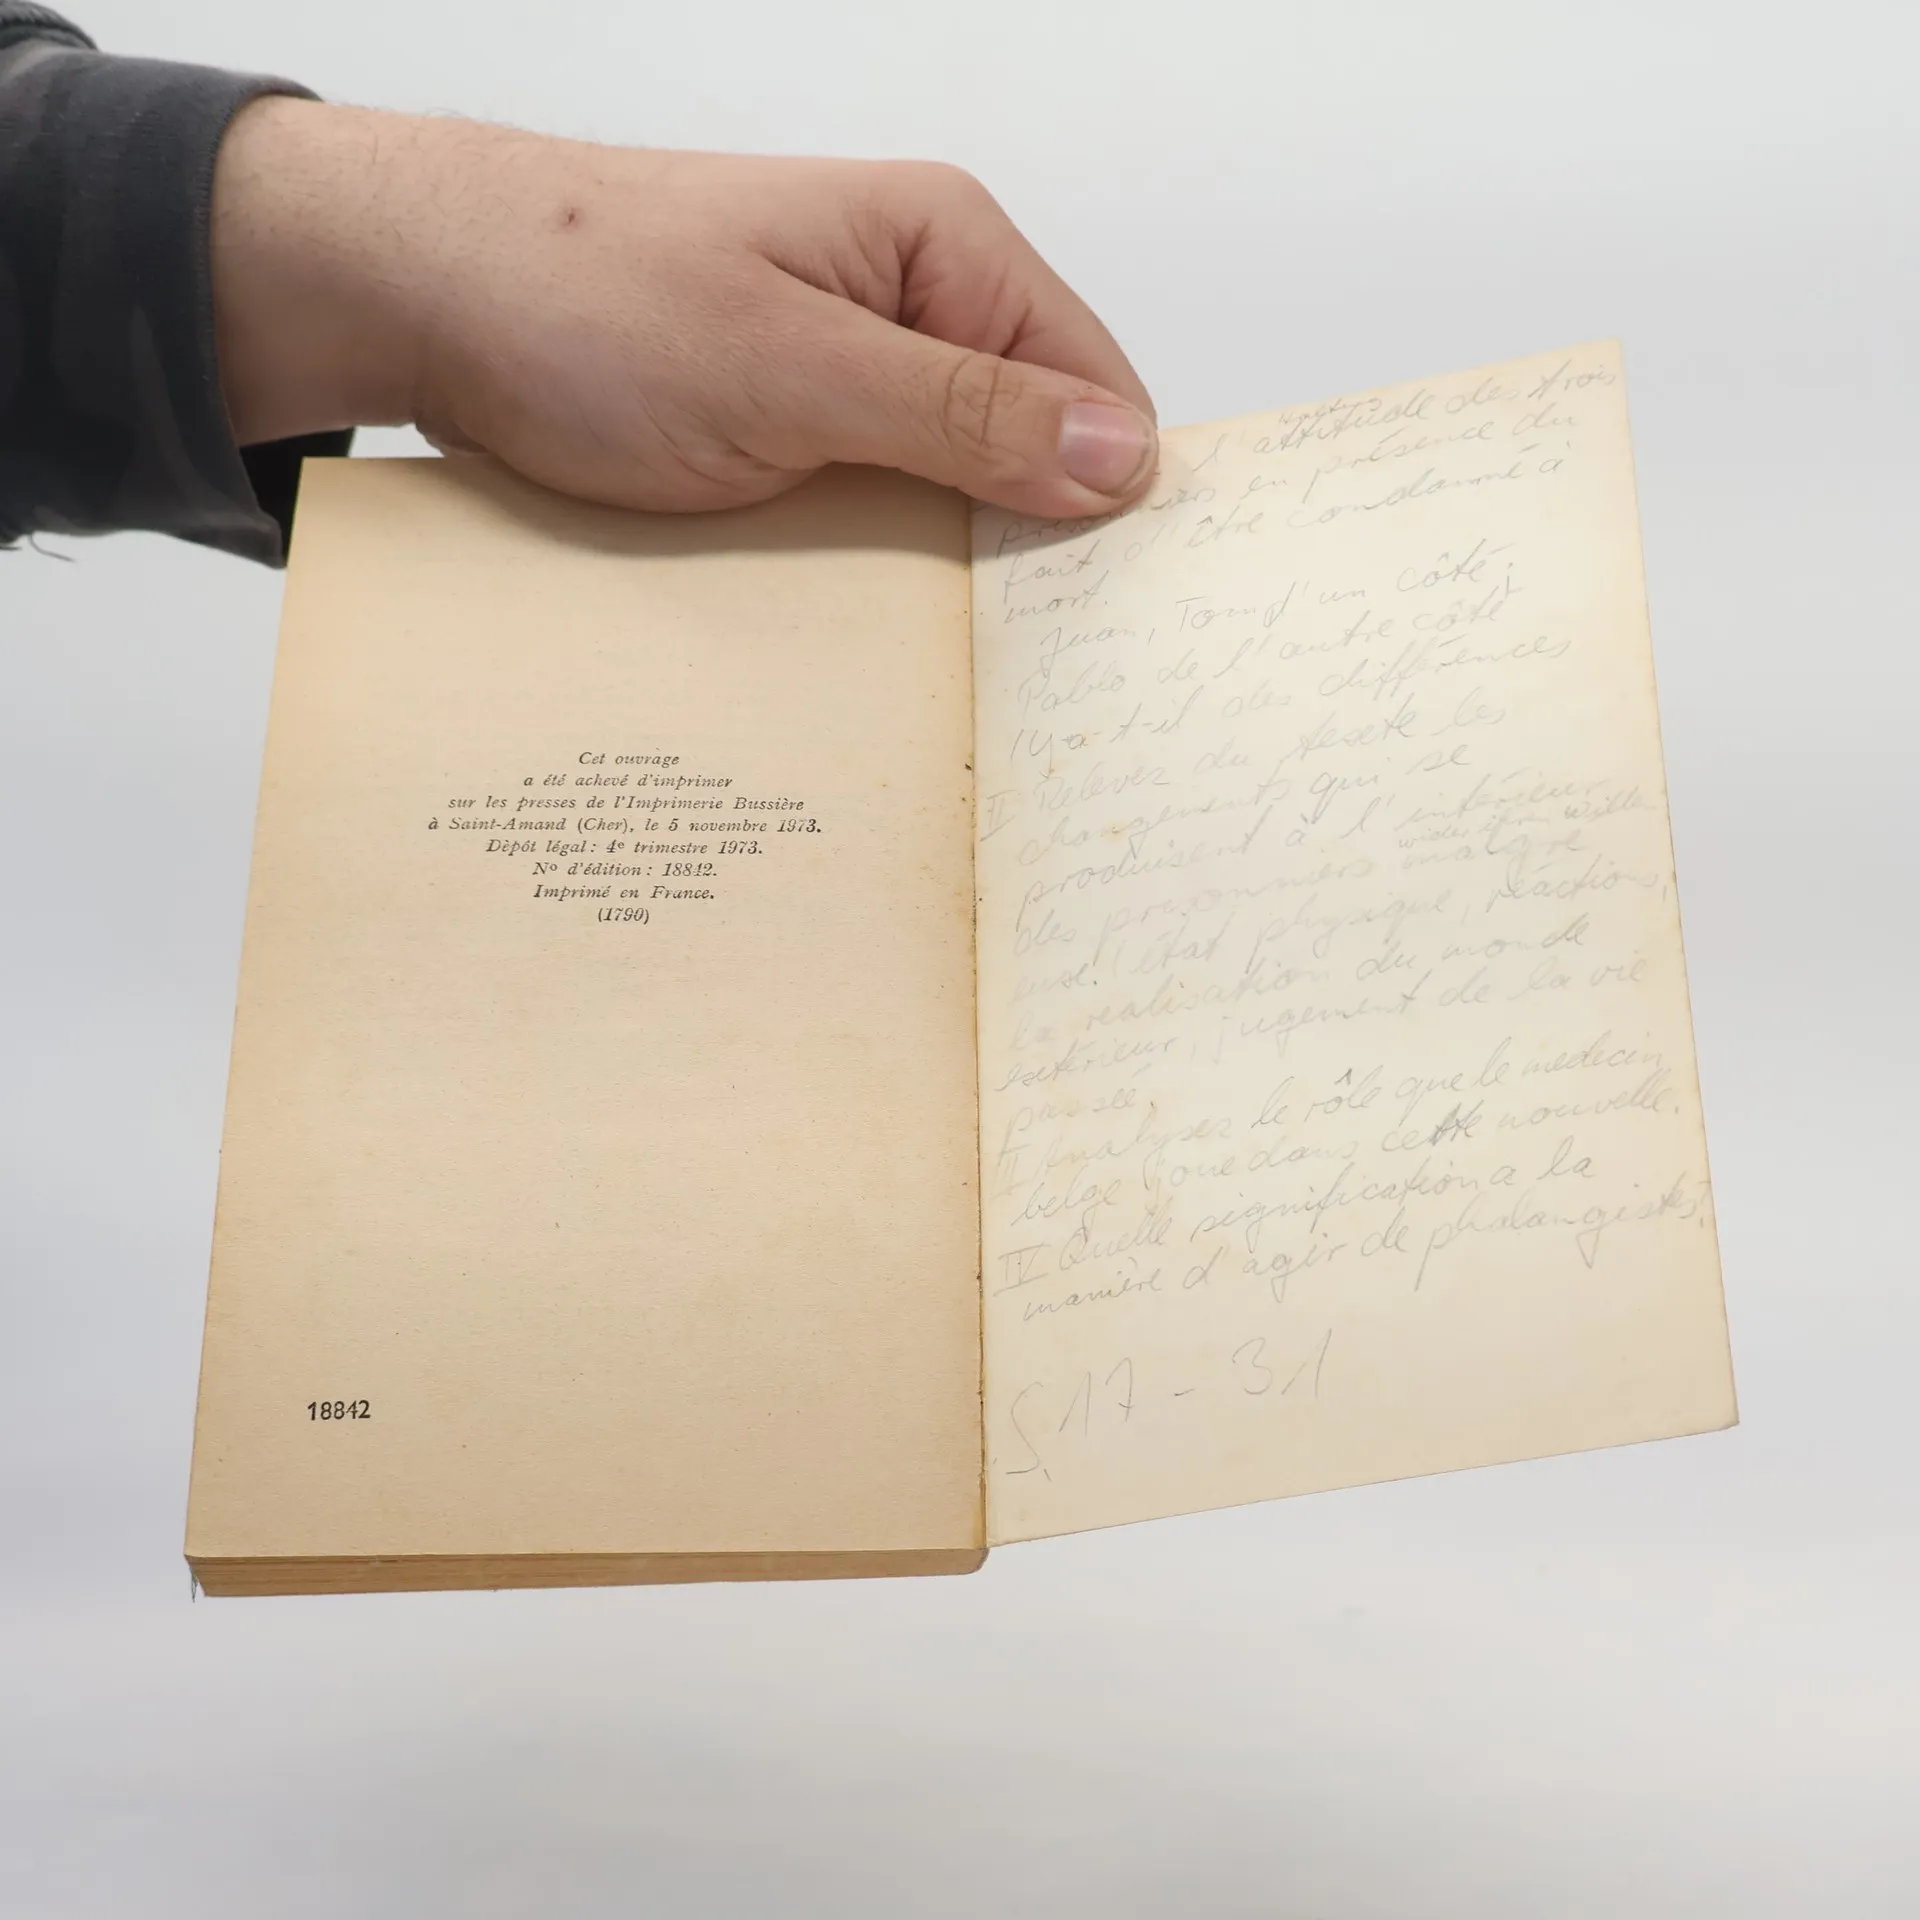 Cet ouvrage
a été achevé d'imprimer
sur les presses de l'Imprimerie Bussière
à Saint-Amand (Cher), le 5 novembre 1973.
Dépôt légal : 4e trimestre 1973.
No d'édition : 18842.
Imprimé en France.
(1790)
18842
l'attitude des trois
en présence du
fait d'être condamné à
mort.
Juan, Tom d'un côté;
Pablo de l'autre côté
Iya-t-il des différences
II Relevez du texte les
changements qui se
produisent à l'intérieur
wider ihren Willen
des prisonniers malgré
eux. l'état physique, réactions,
la realisation du monde
extérieur, jugement de la vie
passée.
II Analysez le rôle que le medecin
belge joue dans cette nouvelle.
IV Quelle signification a la
manière d'agir de phalangistes?
S. 17 - 31